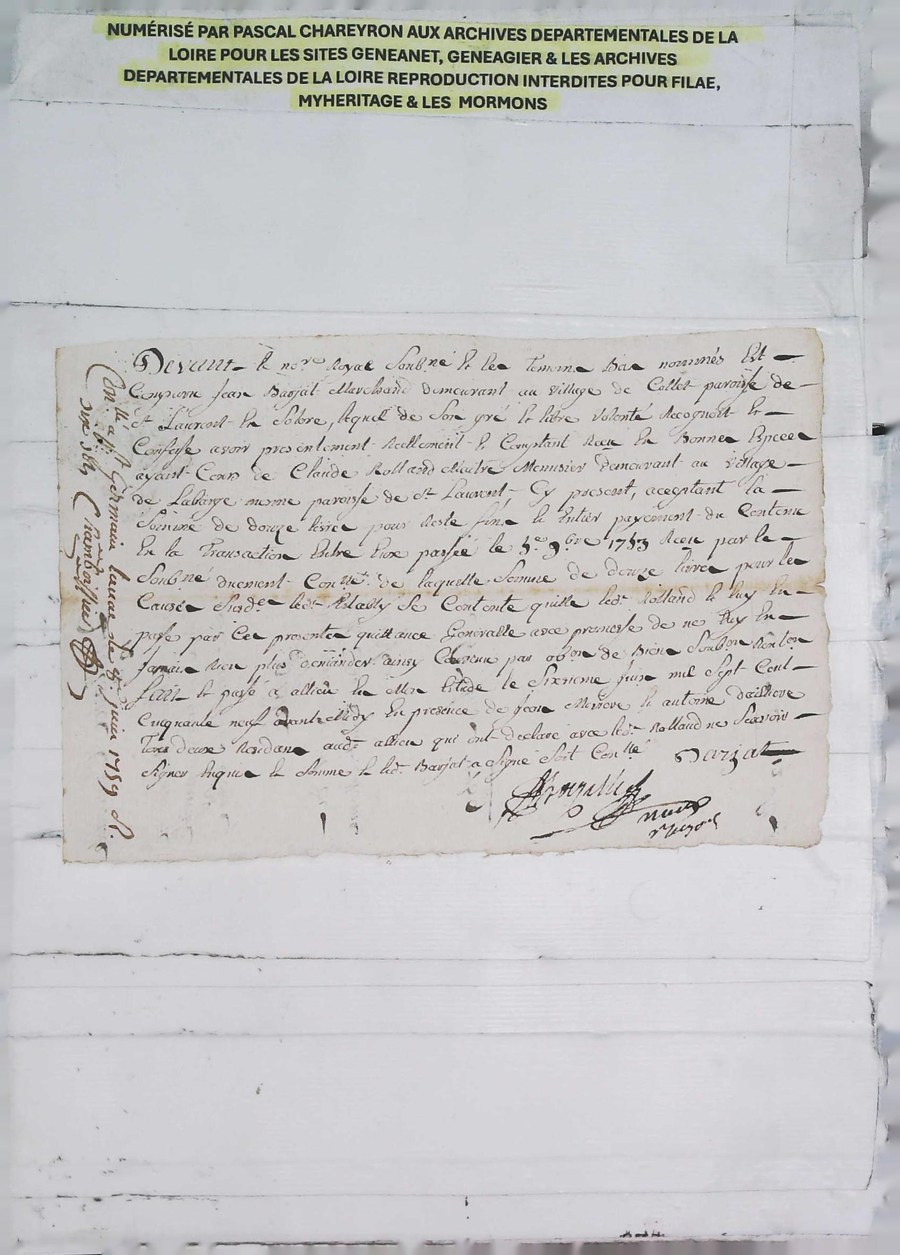 NUMÉRISÉ PAR PASCAL CHAREYRON AUX ARCHIVES DEPARTEMENTALES DE LA
LOIRE POUR LES SITES GENEANET, GENEAGIER & LES ARCHIVES
DEPARTEMENTALES DE LA LOIRE REPRODUCTION INTERDITES POUR FILAE,
MYHERITAGE & LES MORMONS
Devant le no.re Royal Soub.né et les temoins Bas nommés Est
Comparu Jean Barjat Marchand demeurant au village de Collet paroisse de
St Laurent En Solore, lequel de son gré et libre volonté Recognoit et
Confesse avoir presentement Reellement et Comptant Receu En Bonnes Especes
ayant Cours de Claude Rolland Maitre Menusier demeurant au village
de Labarge meme paroisse de St Laurent Cy present, aceptant la
Somme de douze livres pour Reste fin et Entier payement du Contenu
En la Transaction Entre Eux passée le 9.bre 1753 Receu par le
Soub.né duement Con.llé de laquelle Somme de douze livres pour les
Causes led. se Contente quitte led. Rolland et luy En
passe par Ces presentes quittance Generalle avec promesse de ne luy En
Jamais Rien plus demander ainsy Convenu par de Biens
fait et passé a allieu En Mon Etude le Sixieme juin mil Sept Cent
Cinquante neuf avant Midy En presence de Jean et antoine
tous deux aud. allieu qui ont declaré avec led. Rolland ne Scavoir
Signer Enquis et Somme et led. Barjat a Signé Soit Con.llé
Barjat
Con.llé a St Germain laval le 8 juin 1759 R.